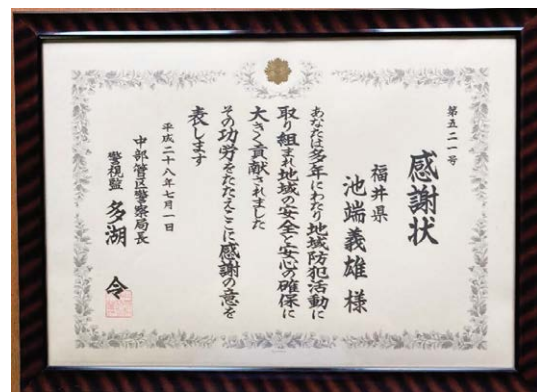 第五二一号
感謝状
福井県
池端義雄様
あなたは多年にわたり地域防犯活動に
取り組まれ地域の安全と安心の確保に
大きく貢献されました
その功労をたたえここに感謝の意を
表します
平成二十八年七月一日
中部管区警察局長
警視監 多湖 令